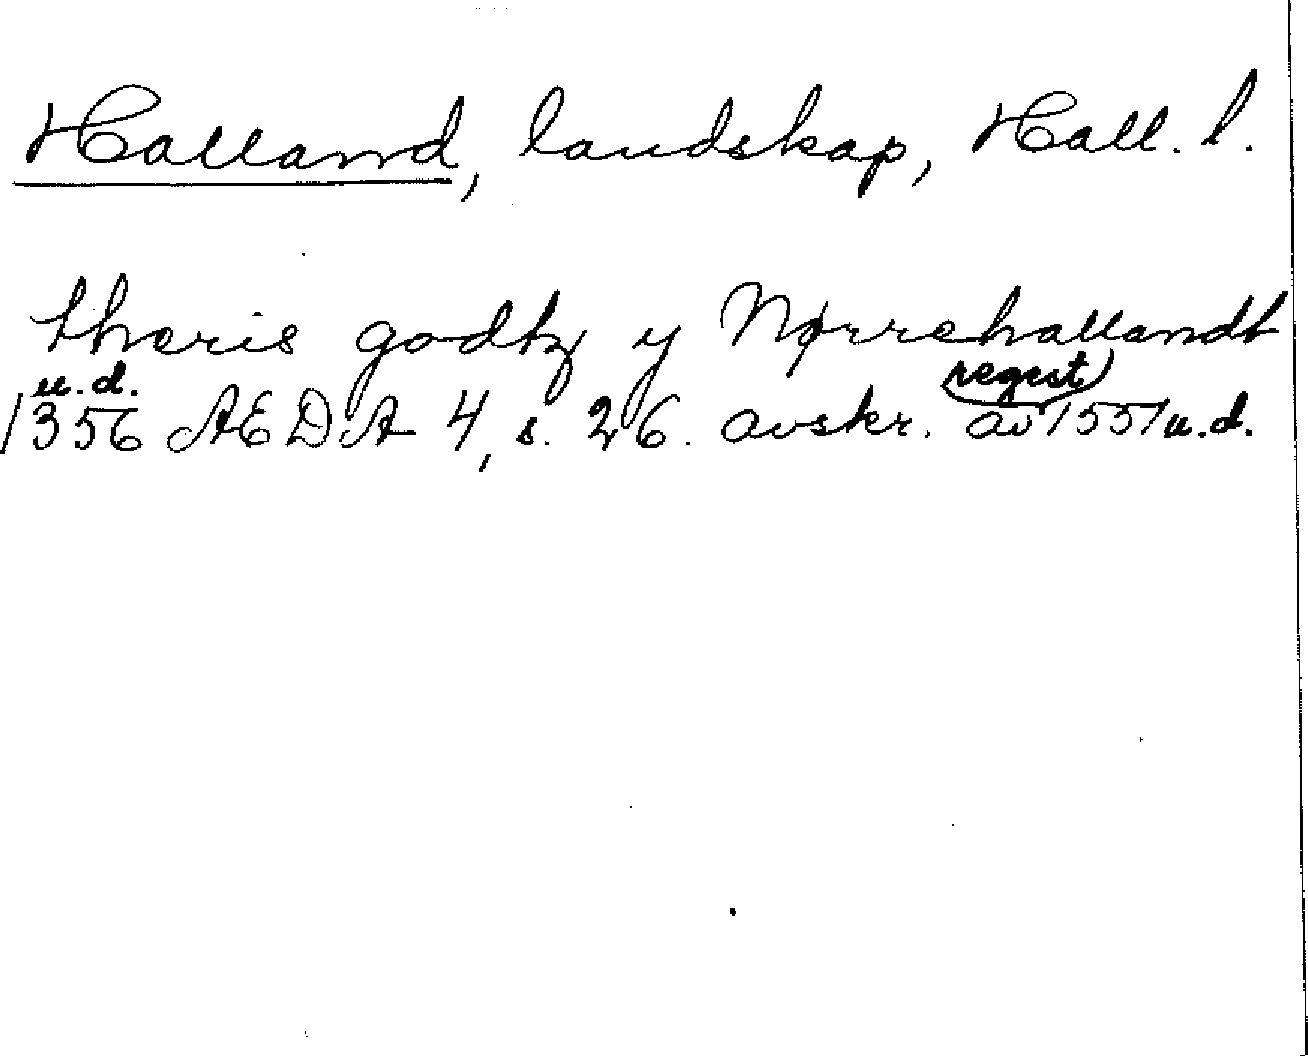 Halland, landskap, Hall. l.
theris godtz y Nørrehallandt
u.d. regest
1356 AEDA 4, s. 26. avskr. av 1551 u.d.